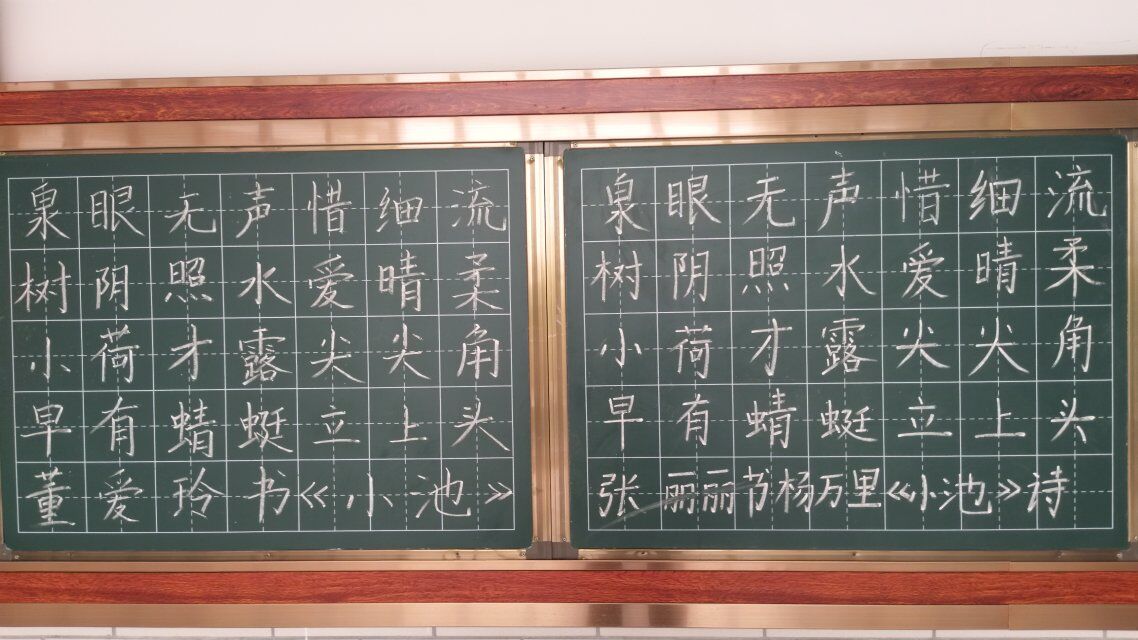 泉眼无声惜细流
树阴照水爱晴柔
小荷才露尖尖角
早有蜻蜓立上头
董爱玲书《小池》
泉眼无声惜细流
树阴照水爱晴柔
小荷才露尖尖角
早有蜻蜓立上头
张丽丽书杨万里《小池》诗